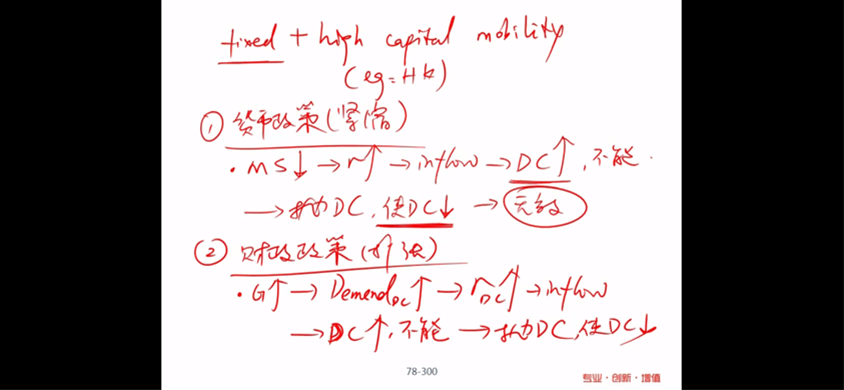 fixed + high capital mobility
(eg=HK)
① 货币政策(紧缩)
· MS↓ → r↑ → inflow → DC↑, 不能.
→ 抛DC, 使DC↓ → 无效
② 财政政策(扩张)
· G↑ → Demend DC↑ → r DC↑ → inflow
→ DC↑, 不能 → 抛DC, 使DC↓
78-300
专业·创新·增值